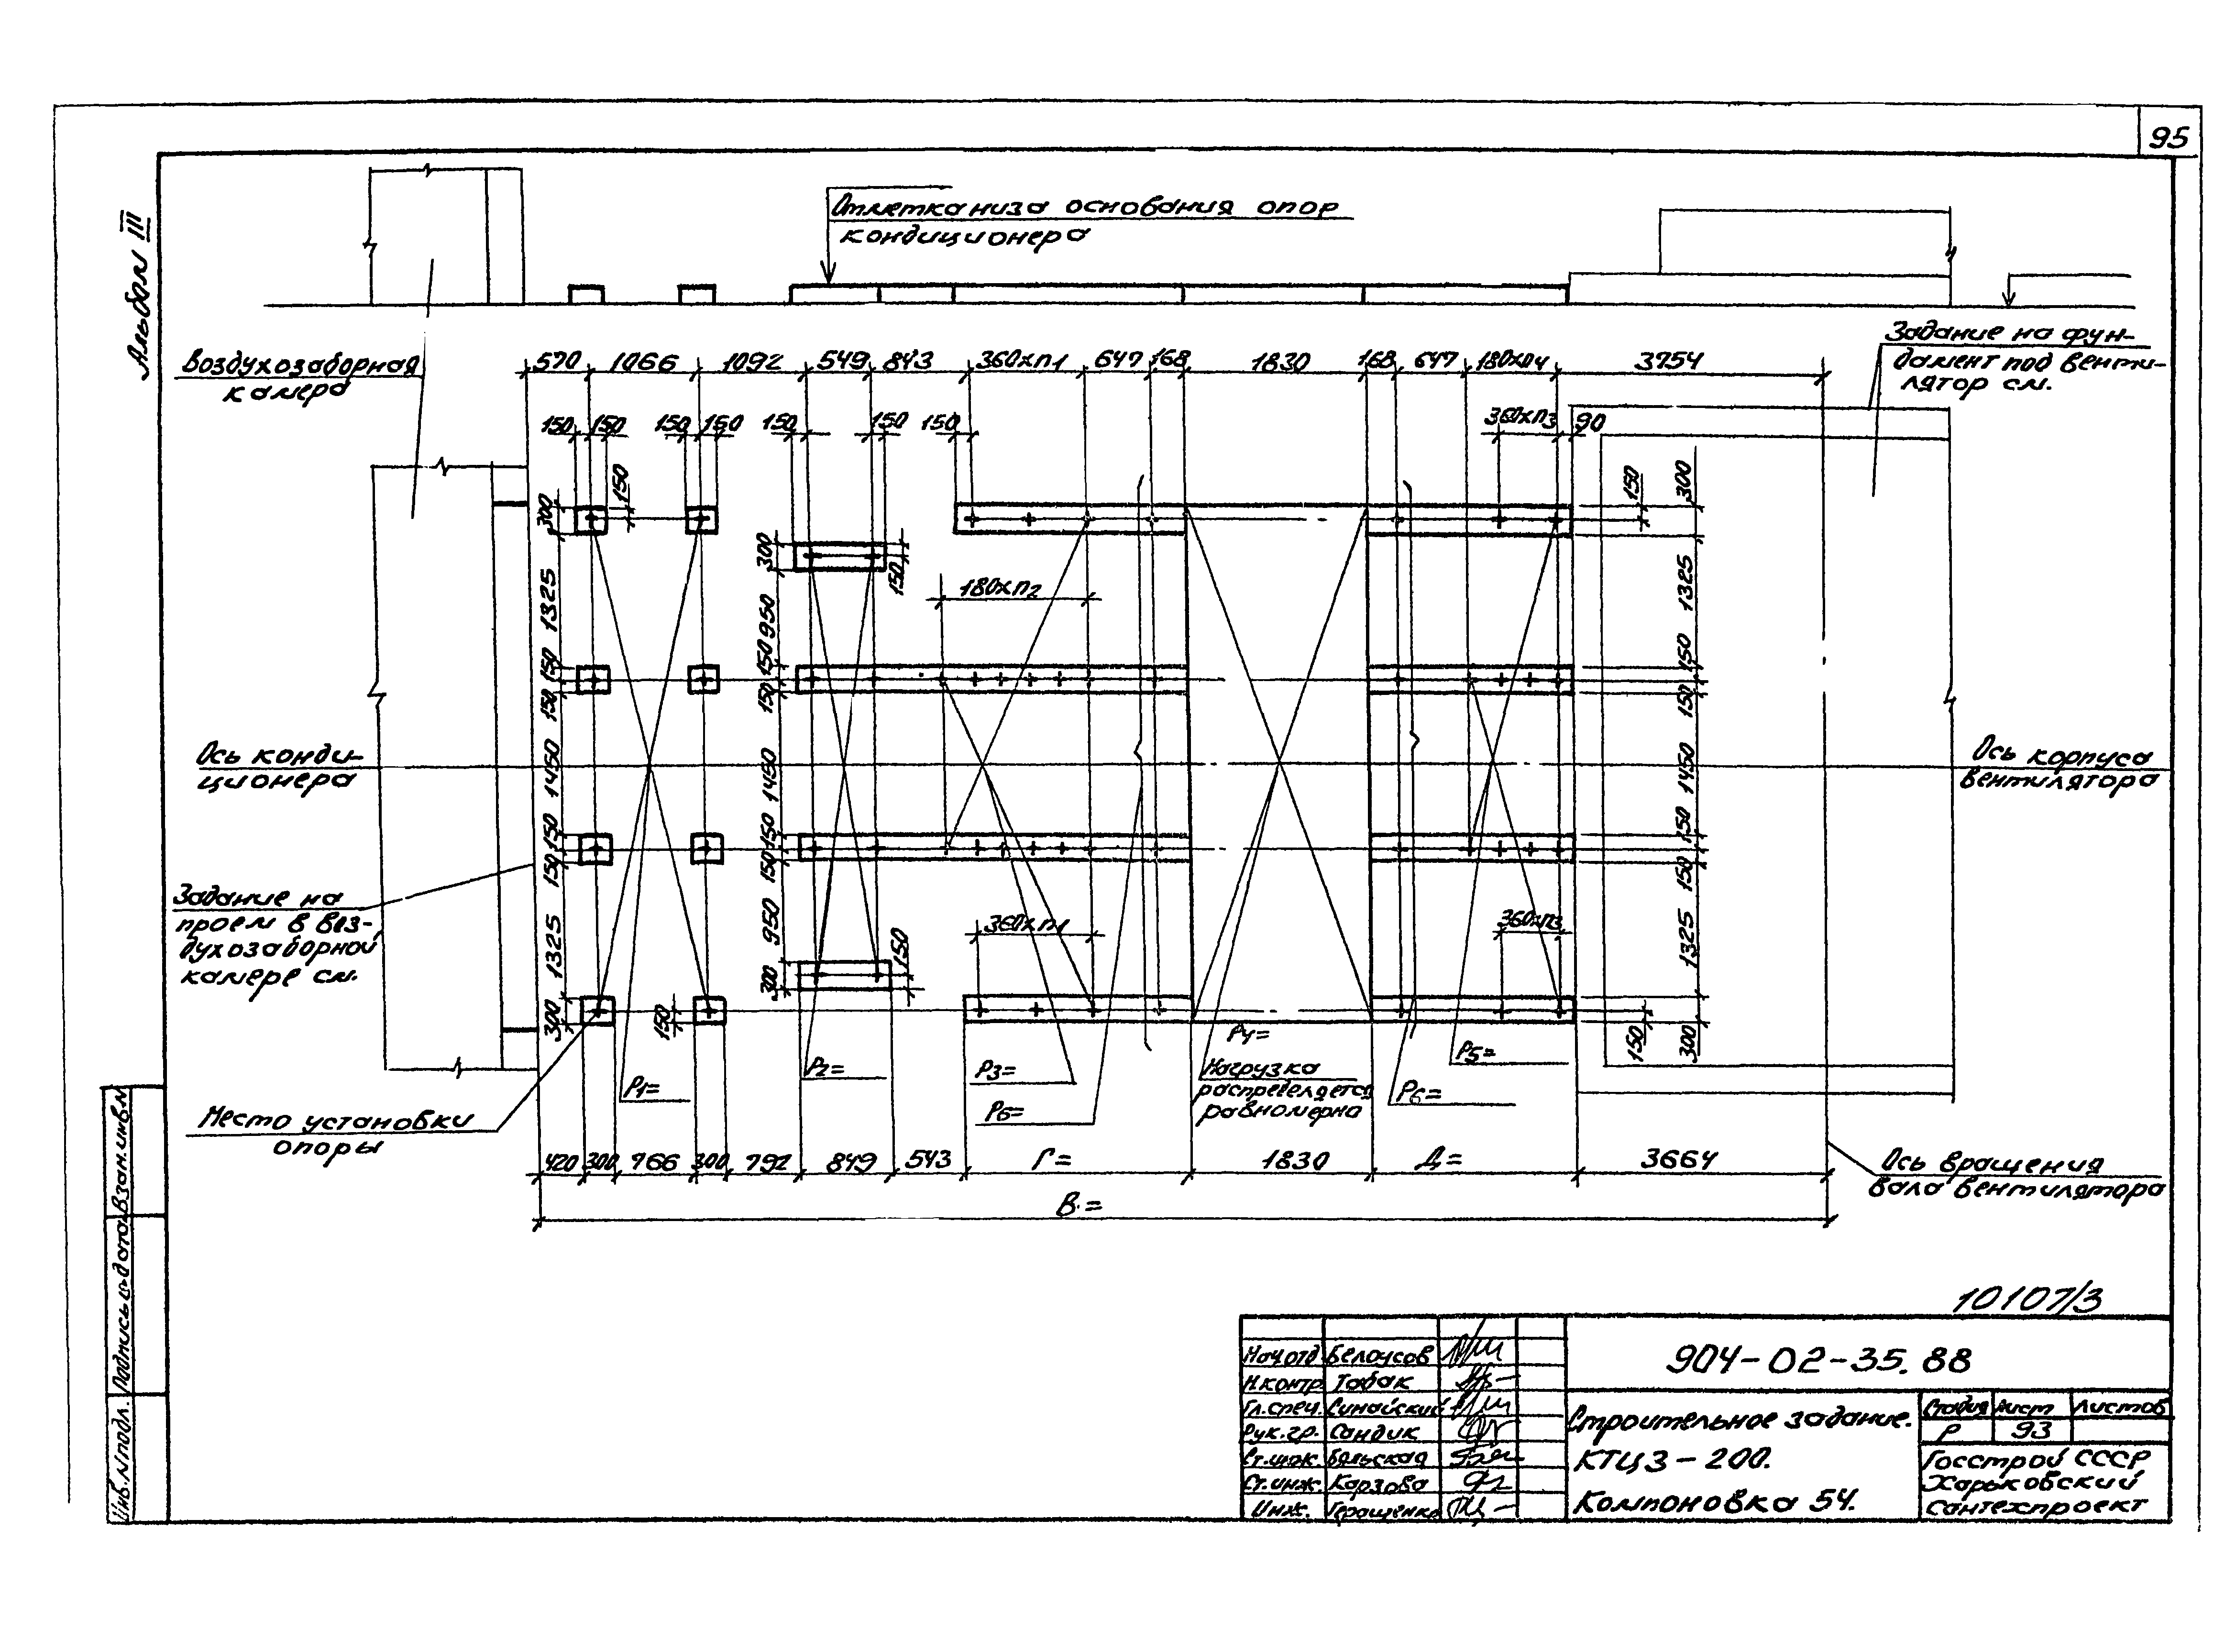 95
Альбом III
Отметка низа основания опор
кондиционера
Воздухозаборная
камера
Задание на фун-
дамент под венти-
лятор см.
570 1066 1092 549 843 360хп1 647 168 1830 168 647 180хп4 3754
150 150 150 150 150 150 150 360хп3 90
150 150 300
300 300 150
1325 950 180хп2 1325
150 150 150
150 150 150
Ось конди-
ционера
1450 1450 1450
Ось корпуса
вентилятора
150 150 150
150 150 150
Задание на
проем в воз-
духозаборной
камере см.
1325 950 360хп1 360хп3 1325
300 150
300 150 150 300
Р4=
Р1= Р2= Р3= Р5=
Р6= Р6=
Нагрузка
распределяется
равномерна
Место установки
опоры
420 300 766 300 792 849 543 Г= 1830 Д= 3664
В=
Ось вращения
вала вентилятора
10107/3
904-02-35.88
Нач.отд Белоусов
Н.контр Табак
Гл.спец. Синайский
Рук.гр. Сандик
Ст.инж. Бельская
Ст.инж. Карзова
Инж. Геращенко
Строительное задание.
КТЦ3-200.
Компоновка 54.
Стадия Лист Листов
Р 93
Госстрой СССР
Харьковский
Сантехпроект
Инв.N подл. Подпись и дата Взам.инв.N